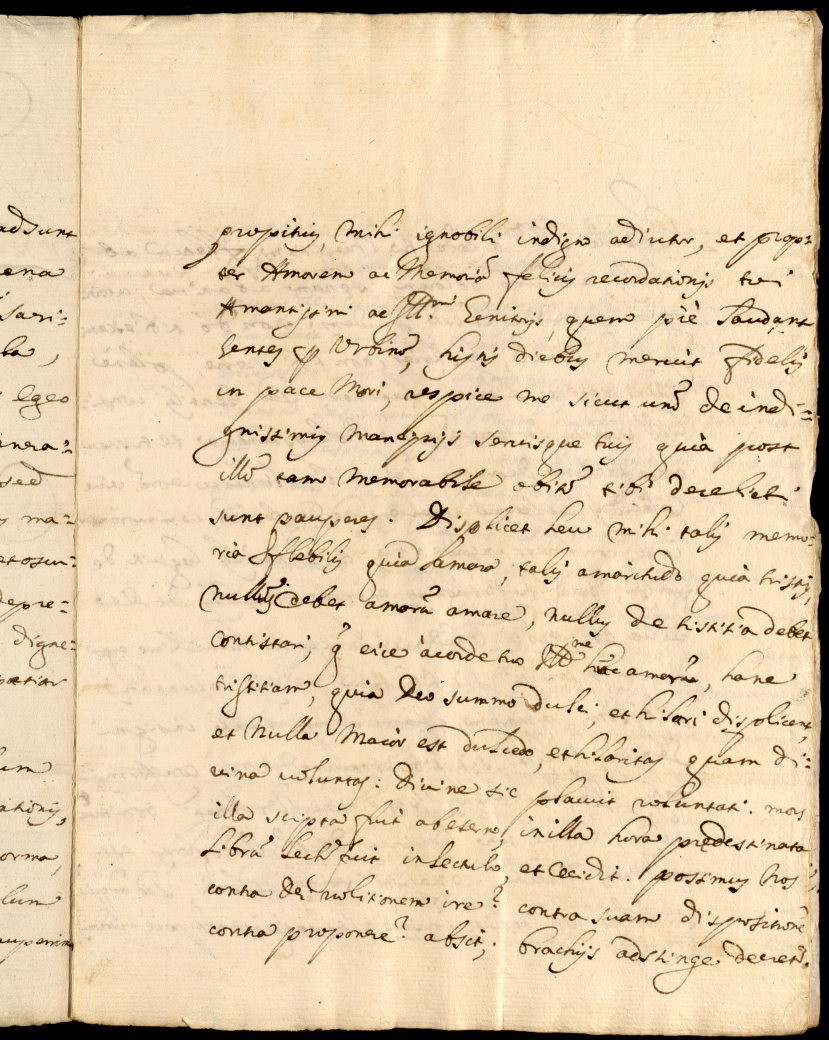 adsunt
ena
sari:
ba,
Egeo
unera:
sed
ma:
etosur:
depre:
digne:
patiar
um
ationis,
orma,
lum
auperrim
propitius, mihi ignobili indigno adiutor, et prop:
ter Amorem ac Memoriā felicis recordationis tui
Amantissimi ac Ill.mi Genitoris, quem piè laudant
Gentes Urbinū, hisnis diebus meruit fidelis
in pace Mori, respice me sicut unū de indi:
gnissimis mancipijs seruisque tuis quià post
illū tam memorabile obitū tibi derelicti
sunt pauperes. Displicet heu mihi talis memo:
ria flebilis quià amara, talis amaritudo quià tristis,
nullus debet amarā amare, nullus de tristitia debet
contristari; eice à corde tuo Ill.me hāc amarā, hanc
tristitiam, quia Deo summo dulci, et hilari displicent,
et Nulla Maior est dulcedo, et hilaritas quam di:
vina voluntas: divine sic placuit voluntati. mors
illa scripta fuit abeterno, in illa hora prędestinata
Librā fuit insectulo, et Cecidit. possimus Nos
contra Dei volitionem ire? contra suam dispositionē
contra proponere? absit; brachijs adstringe decretū.